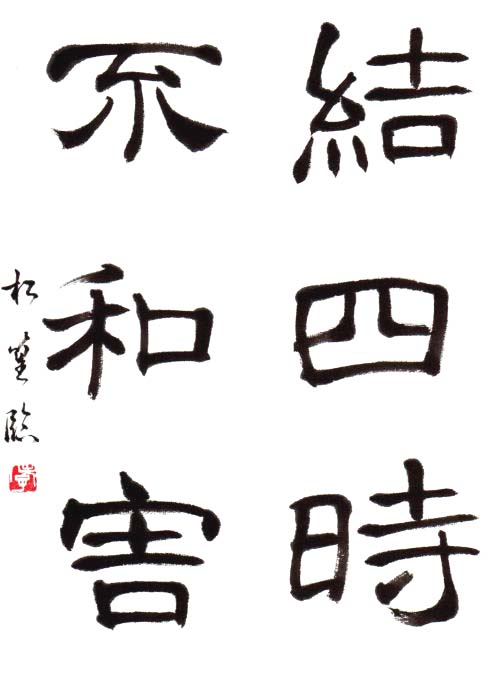 結四時
不和害
松篁臨